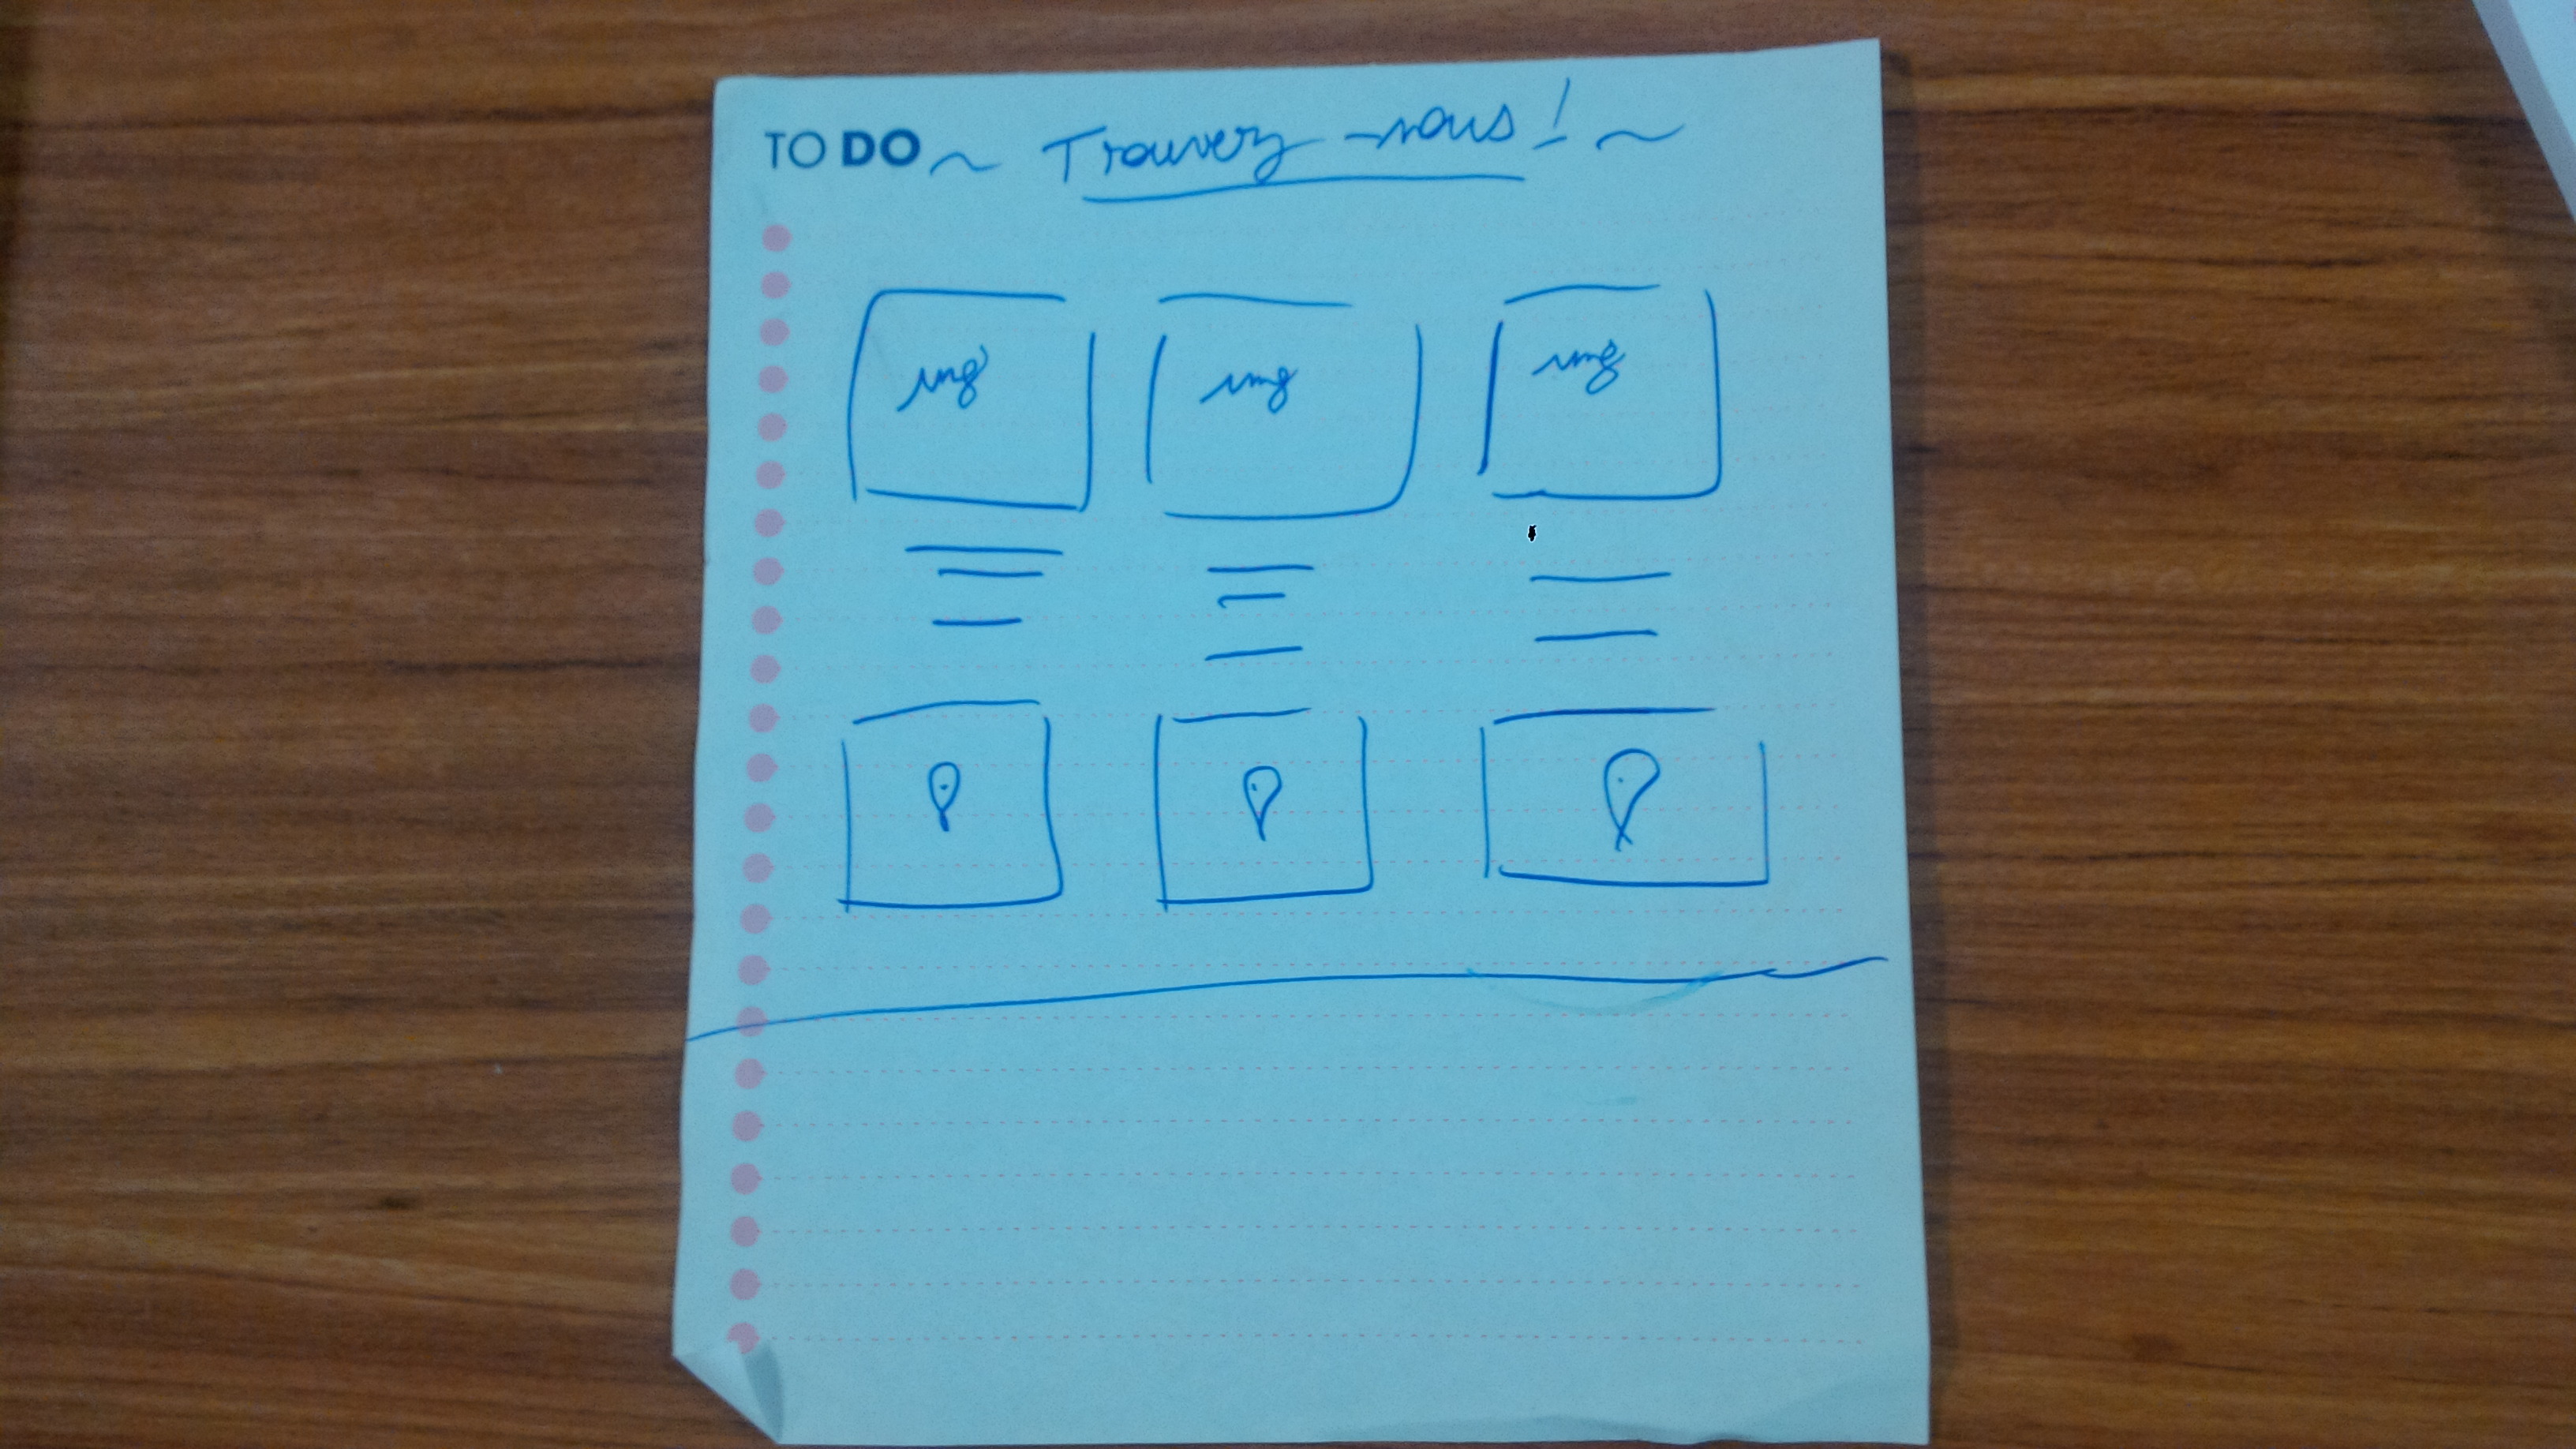 TO DO ~ Trouvez-nous! ~
img img img